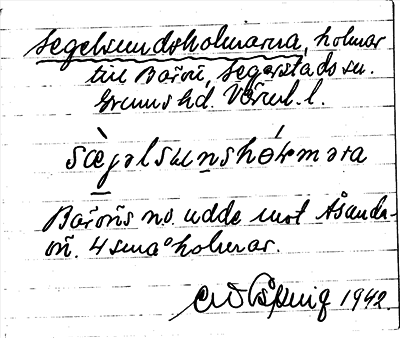 Segelsundsholmarna, holmar
till Barön, Segerstads sn.
Grums hd. Värml. l.
sæ̀gəlsunshólməra
Baröns no. udde mot Åsunda-
ön. 4 små holmar.
1942.